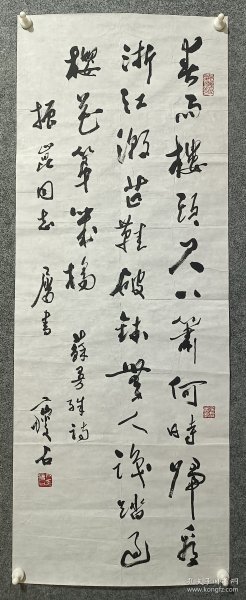 春雨楼頭尺八簫何時歸看
浙江潮芒鞋破钵無人識踏過
櫻花第幾橋 蘇曼殊詩
振崑同志 屬書 瘦石